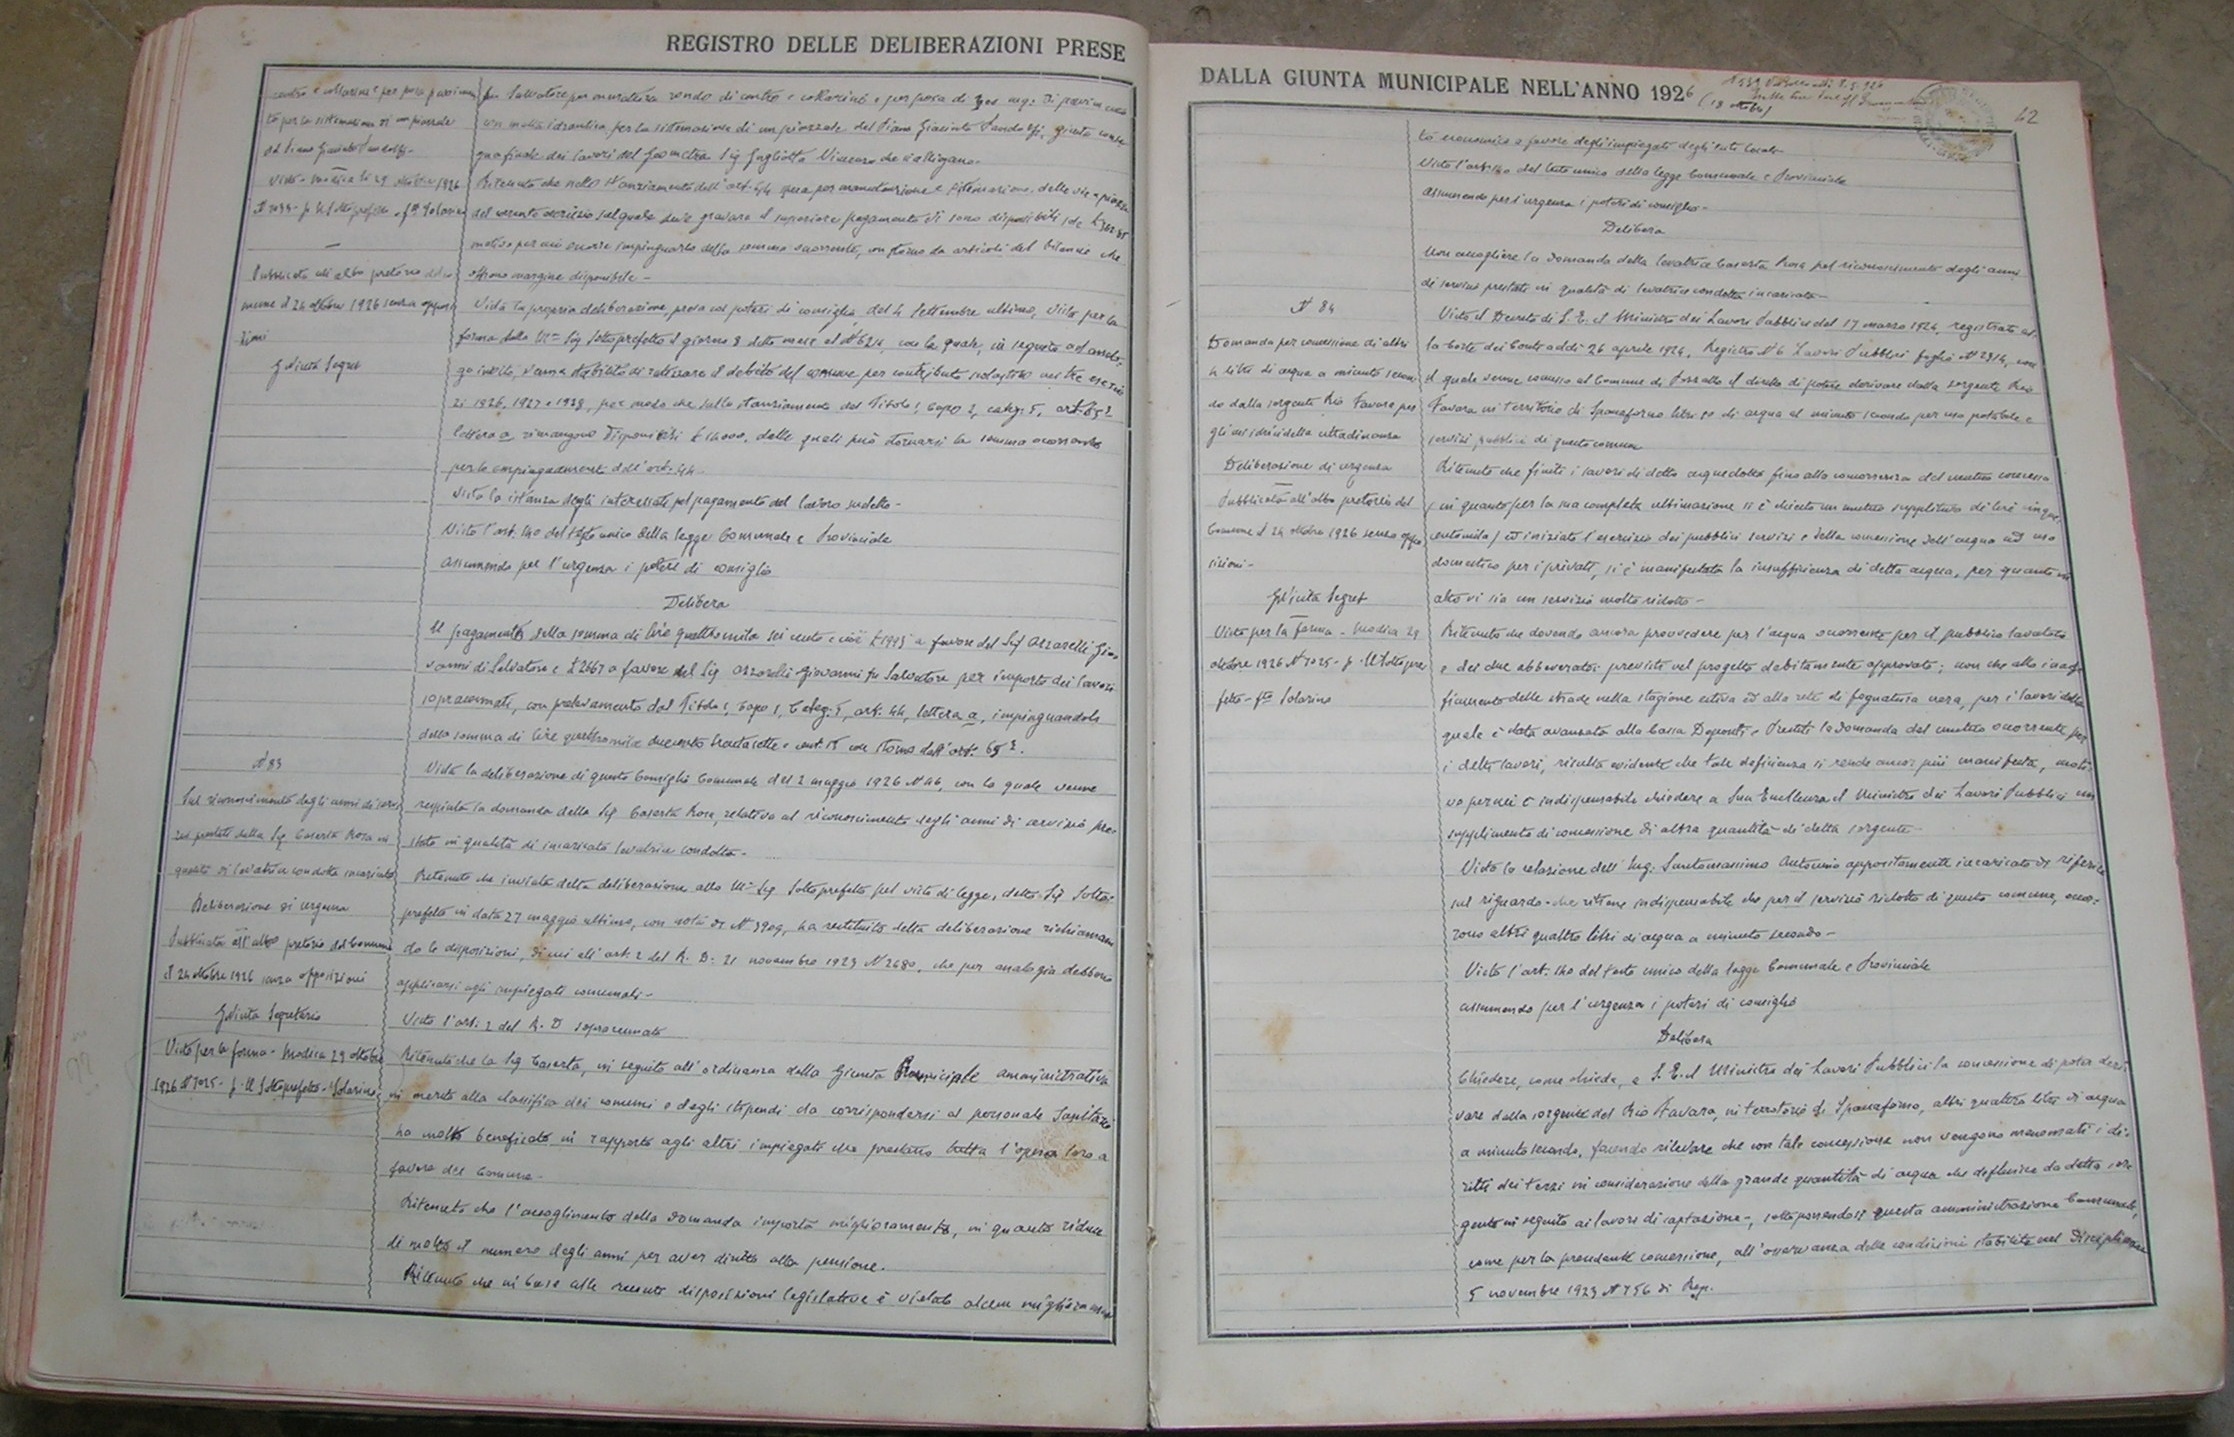 REGISTRO DELLE DELIBERAZIONI PRESE
to per la sistemazione di un piazzale
Pubblicata all'albo pretorio del co
mune il 24 ottobre 1926 senza opposi
zioni
Segret
con malta idraulica, per la sistemazione di un piazzale del Piano Giacinto
qua finale dei lavori del Geometra Sig
Ritenuto che nello stanziamento dell'art. 44 spesa per manutenzione e sistemazione delle vie e piazze
del corrente esercizio sul quale deve gravare il superiore pagamento vi sono disponibili sole
motivo per cui occorre impinguarlo della somma occorrente, con storno da articoli del bilancio che
offrono margine disponibile -
Vista la propria deliberazione, presa coi poteri di consiglio, del 4 Settembre ultimo, visto per la
forma dallo Ill.mo Sig. Sottoprefetto il giorno 8 detto mese al con la quale, in seguito ad analo-
go invito, venne stabilito di rateizzare il debito del comune per contributo scolastico nei tre eserci
zi 1926, 1927 e 1928, per modo che sullo stanziamento del Titolo 1, Capo 2, categ. 5, art.
lettera a rimangono disponibili dalle quali può stornarsi la somma occorrente
per lo impinguamento dell'art. 44
Vista la istanza degli interessati pel pagamento del lavoro suddetto -
Visto l'art. 140 del testo unico della legge Comunale e Provinciale
assumendo per l'urgenza i poteri di consiglio
Delibera
Il pagamento della somma di lire quattromila sei cento e cioè a favore del Sig Azzarelli Gio
vanni di Salvatore e £ 2667 a favore del Sig Azzarelli Giovanni fu Salvatore per importo dei lavori
sopracennati, con prelevamento dal Titolo 1, Capo 1, Categ. 5, art. 44, lettera a, impinguandolo
della somma di lire quattromila duecento trentasette e cent. 15 con storno dall'art.
N 83
Sul riconoscimento degli anni di servi
zio prestati dalla Sig Caserta Rosa in
qualità di levatrice condotta incaricata
Deliberazione di urgenza
Pubblicata all'albo pretorio del Comune
il 24 ottobre 1926 senza opposizioni
Segretario
Visto per la forma - Modica 29 ottobre
1926 N 7025 - p. Il Sottoprefetto - Solarino
Vista la deliberazione di questo Consiglio Comunale del 2 maggio 1926 N 46, con la quale venne
respinta la domanda della Sig Caserta Rosa, relativa al riconoscimento degli anni di servizio pre-
stato in qualità di incaricata levatrice condotta -
Ritenuto che inviata detta deliberazione allo Ill.mo Sig Sottoprefetto pel visto di legge, detto Sig Sotto-
prefetto in data 27 maggio ultimo, con nota di N 3909, ha restituito detta deliberazione richiaman
do le disposizioni, di cui all'art. 2 del R. D. 21 novembre 1923 N 2680, che per analogia debbono
applicarsi agli impiegati comunali -
Visto l'art. 2 del R. D sopracennato
Ritenuto che la Sig Caserta, in seguito all'ordinanza della Giunta Provinciale amministrativa
in merito alla classifica dei comuni e degli stipendi da corrispondersi al personale Sanitario
ha molto beneficato in rapporto agli altri impiegati che prestano tutta l'opera loro a
favore del Comune -
Ritenuto che l'accoglimento della domanda importa miglioramento, in quanto riduce
di molto il numero degli anni per aver diritto alla pensione.
Ritenuto che in base alle recenti disposizioni legislative è vietato alcun miglioramen
DALLA GIUNTA MUNICIPALE NELL'ANNO 1926
(18 ottobre)
42
to economico a favore degli impiegati degli enti locali
Visto l'art. 140 del testo unico della legge Comunale e Provinciale
assumendo per l'urgenza i poteri di consiglio -
Delibera
Non accogliere la domanda della levatrice Caserta Rosa pel riconoscimento degli anni
di servizio prestati in qualità di levatrice condotta incaricata -
N 84
Domanda per concessione di altri
4 litri di acqua a minuto secon
do dalla sorgente Rio Favara per
gli usi idrici della cittadinanza
Deliberazione di urgenza
Pubblicata all'albo pretorio del
Comune il 24 ottobre 1926 senza oppo
sizioni -
Segret
Visto per la forma - Modica 29
ottobre 1926 N 7025 - p. Il Sottopre
fetto - f.to Solarino
Visto il Decreto di S. E. il Ministro dei Lavori Pubblici del 17 marzo 1924, registrato al-
la Corte dei Conti addì 26 aprile 1924, Registro N 6 Lavori Pubblici foglio N 2314, con
il quale venne concesso al Comune di Pozzallo il diritto di potere derivare dalla sorgente Rio
Favara in territorio di Spaccaforno litri 10 di acqua al minuto secondo per uso potabile e
servizi pubblici di questo comune
Ritenuto che finiti i lavori di detto acquedotto fino alla concorrenza del mutuo concesso
(in quanto per la sua completa ultimazione si è chiesto un mutuo suppletivo di lire cinque-
centomila) ed iniziato l'esercizio dei pubblici servizi e della concessione dell'acqua ad uso
domestico per i privati, si è manifestata la insufficienza di detta acqua, per quanto in
atto vi sia un servizio molto ridotto -
Ritenuto che dovendo ancora provvedere per l'acqua occorrente per il pubblico lavatoio
e dei due abbeveratoi previsti nel progetto debitamente approvato; non che allo inaf-
fiamento delle strade nella stagione estiva ed alla rete di fognatura nera, per i lavori della
quale è stata avanzata alla Cassa Depositi e Prestiti la domanda del mutuo occorrente per
i detti lavori, risulta evidente che tale deficienza si rende ancor più manifesta, moti-
vo per cui è indispensabile chiedere a Sua Eccellenza il Ministro dei Lavori Pubblici un
supplimento di concessione di altra quantità di detta sorgente -
Vista la relazione dell'Ing. Santomassimo Antonino appositamente incaricato di riferire
sul riguardo - che ritiene indispensabile che per il servizio ridotto di questo comune, occor-
rono altri quattro litri di acqua a minuto secondo -
Visto l'art. 140 del testo unico della legge Comunale e Provinciale
assumendo per l'urgenza i poteri di consiglio
Delibera
Chiedere, come chiede, a S. E. il Ministro dei Lavori Pubblici la concessione di poter deri-
vare dalla sorgente del Rio Favara, in territorio di Spaccaforno, altri quattro litri di acqua
a minuto secondo, facendo rilevare che con tale concessione non vengono menomati i di-
ritti dei terzi in considerazione della grande quantità di acqua che defluisce da detta sor
gente in seguito ai lavori di captazione -, sottoponendosi questa amministrazione Comunale,
come per la precedente concessione, all'osservanza delle condizioni stabilite nel Disciplinare
5 novembre 1923 N 756 di Rep.